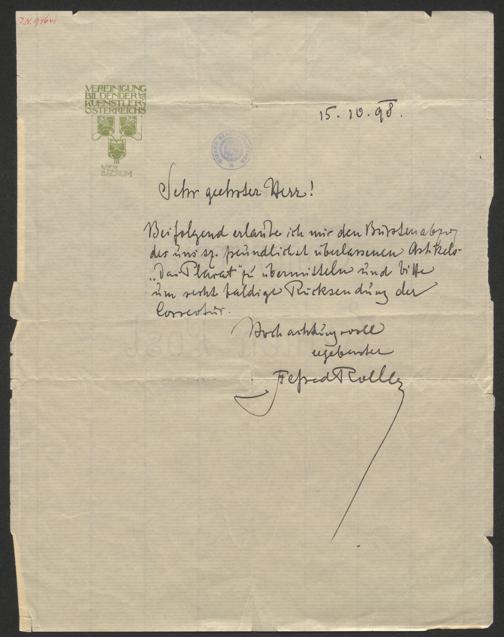 VEREINIGUNG
BILDENDER
KUENSTLER
ÖSTERREICHS
15. 10. 98.
Sehr geehrter Herr!
Beifolgend erlaube ich mir den Bürstenabzug
des uns so freundlichst überlassenen Artikels
„Das Plakat" zu übermitteln und bitte
um recht baldige Rücksendung der
Correctur.
Hochachtungsvoll
ergebenster
Alfred Roller